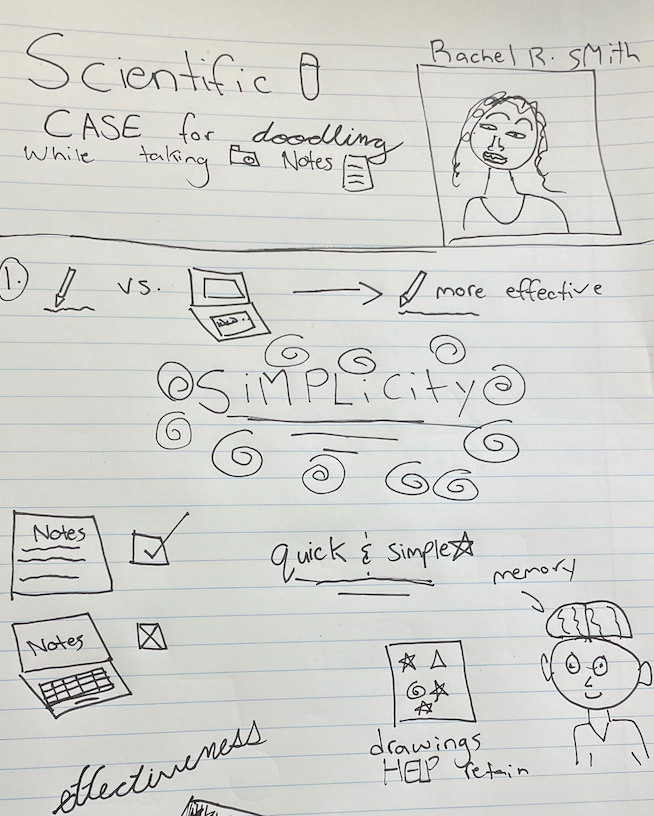 Rachel R. SMitH
Scientific
CASE for doodling
While taking Notes
1. vs. more effective
SiMPLiCity
Notes
quick & simple
memory
Notes
drawings
HELP retain
effectiveness